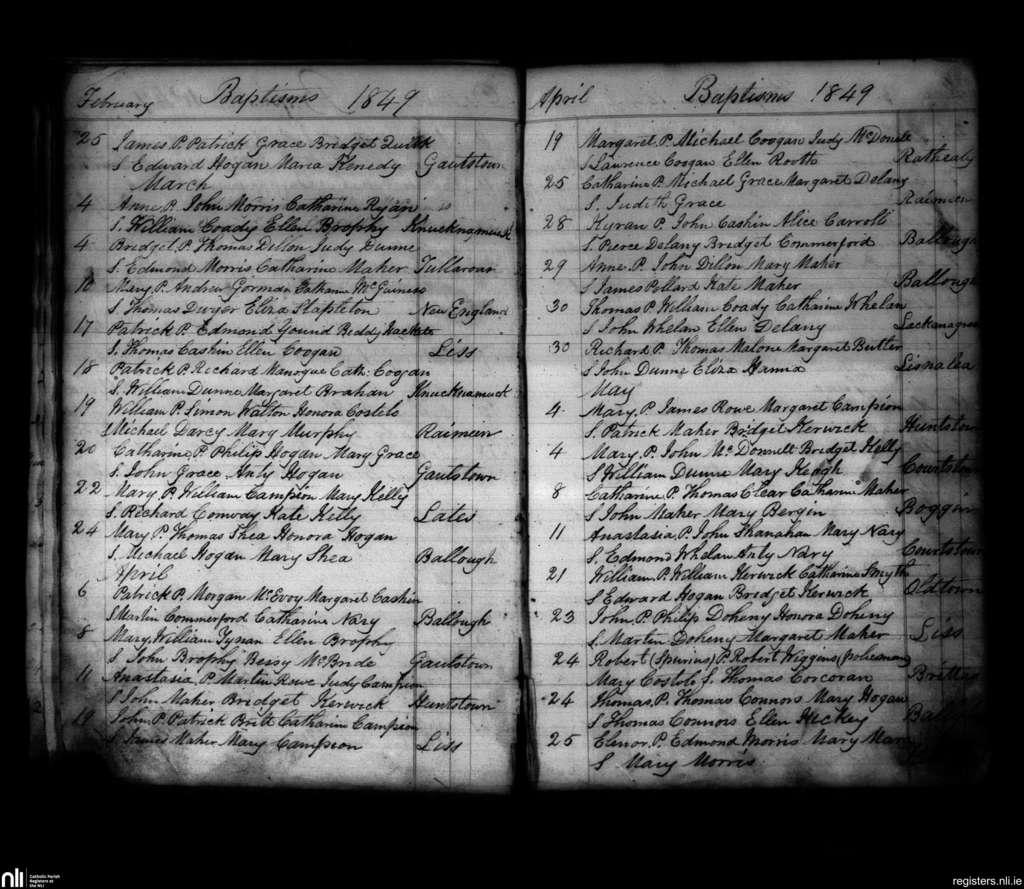 February Baptisms 1849
25 James P. Patrick Grace Bridget Quirk
S Edward Hogan Maria Kenedy Gaulstown
March
4 Anne P. John Morris Catharine Ryan
S. William Coady Ellen Brophy Knucknamuck
4 Bridget P. Thomas Dillon Judy Dunne
S. Edmond Morris Catharine Maher Tullaroan
10 Mary P. Andrew Gorman Catharine McGuiness
S Thomas Dwyer Eliza Stapleton New England
17 Patrick P. Edmond Biddy
S. Thomas Cashin Ellen Coogan Liss
18 Patrick P. Richard Manogue Cath: Coogan
S. William Dunne Margaret Brahan Knucknamuck
19 William P. Simon Walton Honora Costelo
S Michael Darcy Mary Murphy Raimein
20 Catharine P. Philip Hogan Mary Grace
S. John Grace Anty Hogan Gaulstown
22 Mary P. William Campion Mary Kelly
S. Richard Conway Kate Kelly Lates
24 Mary P. Thomas Shea Honora Hogan
S. Michael Hogan Mary Shea Ballough
April
6 Patrick P. Morgan McEvoy Margaret Cashin
S Martin Commerford Catharine Nary Ballough
8 Mary, William Tynan Ellen Brophy
S. John Brophy Bessy McBride Gaulstown
11 Anastasia P. Martin Rowe Judy Campion
S John Maher Bridget Kerwick Huntstown
19 John P. Patrick Britt Catharine Campion
S. James Maher Mary Campion Liss
April Baptisms 1849
19 Margaret P. Michael Coogan Judy McDonell
S Lawrence Coogan Ellen Rooth Rathealy
25 Catharine P. Michael Grace Margaret Delany
S. Judith Grace Raimein
28 Kyran P. John Cashin Alice Carroll
S. Pierce Delany Bridget Commerford Ballough
29 Anne P. John Dillon Mary Maher
S James Pollard Kate Maher Ballough
30 Thomas P. William Coady Catharine Whelan
S John Whelan Ellen Delany
30 Richard P. Thomas Malone Margaret Butler
S John Dunne Eliza Hanna Lisnalea
May
4. Mary P. James Rowe Margaret Campion
S. Patrick Maher Bridget Kerwick Huntstown
4 Mary P. John McDonnell Bridget Kelly
S William Dunne Mary Keogh Courtstown
8 Catharine P. Thomas Clear Catharine Maher
S John Maher Mary Bergin Boggin
11 Anastasia P. John Shanahan Mary Nary
S. Edmond Whelan Anty Nary Courtstown
21 William P. William Kerwick Catharine Smyth
S Edward Hogan Bridget Kerwick Oldtown
23 John P. Philip Doheny Honora Doheny
S. Martin Doheny Margaret Maher Liss
24 Robert (Spurius) P. Robert Wiggins (policeman)
Mary Costolo S. Thomas Corcoran Brittas
24 Thomas P. Thomas Connors Mary Hogan
S Thomas Connors Ellen Hickey
25 Elenor P. Edmond Morris Mary
S Mary Morris
nli Catholic Parish
Registers at
the NLI
registers.nli.ie